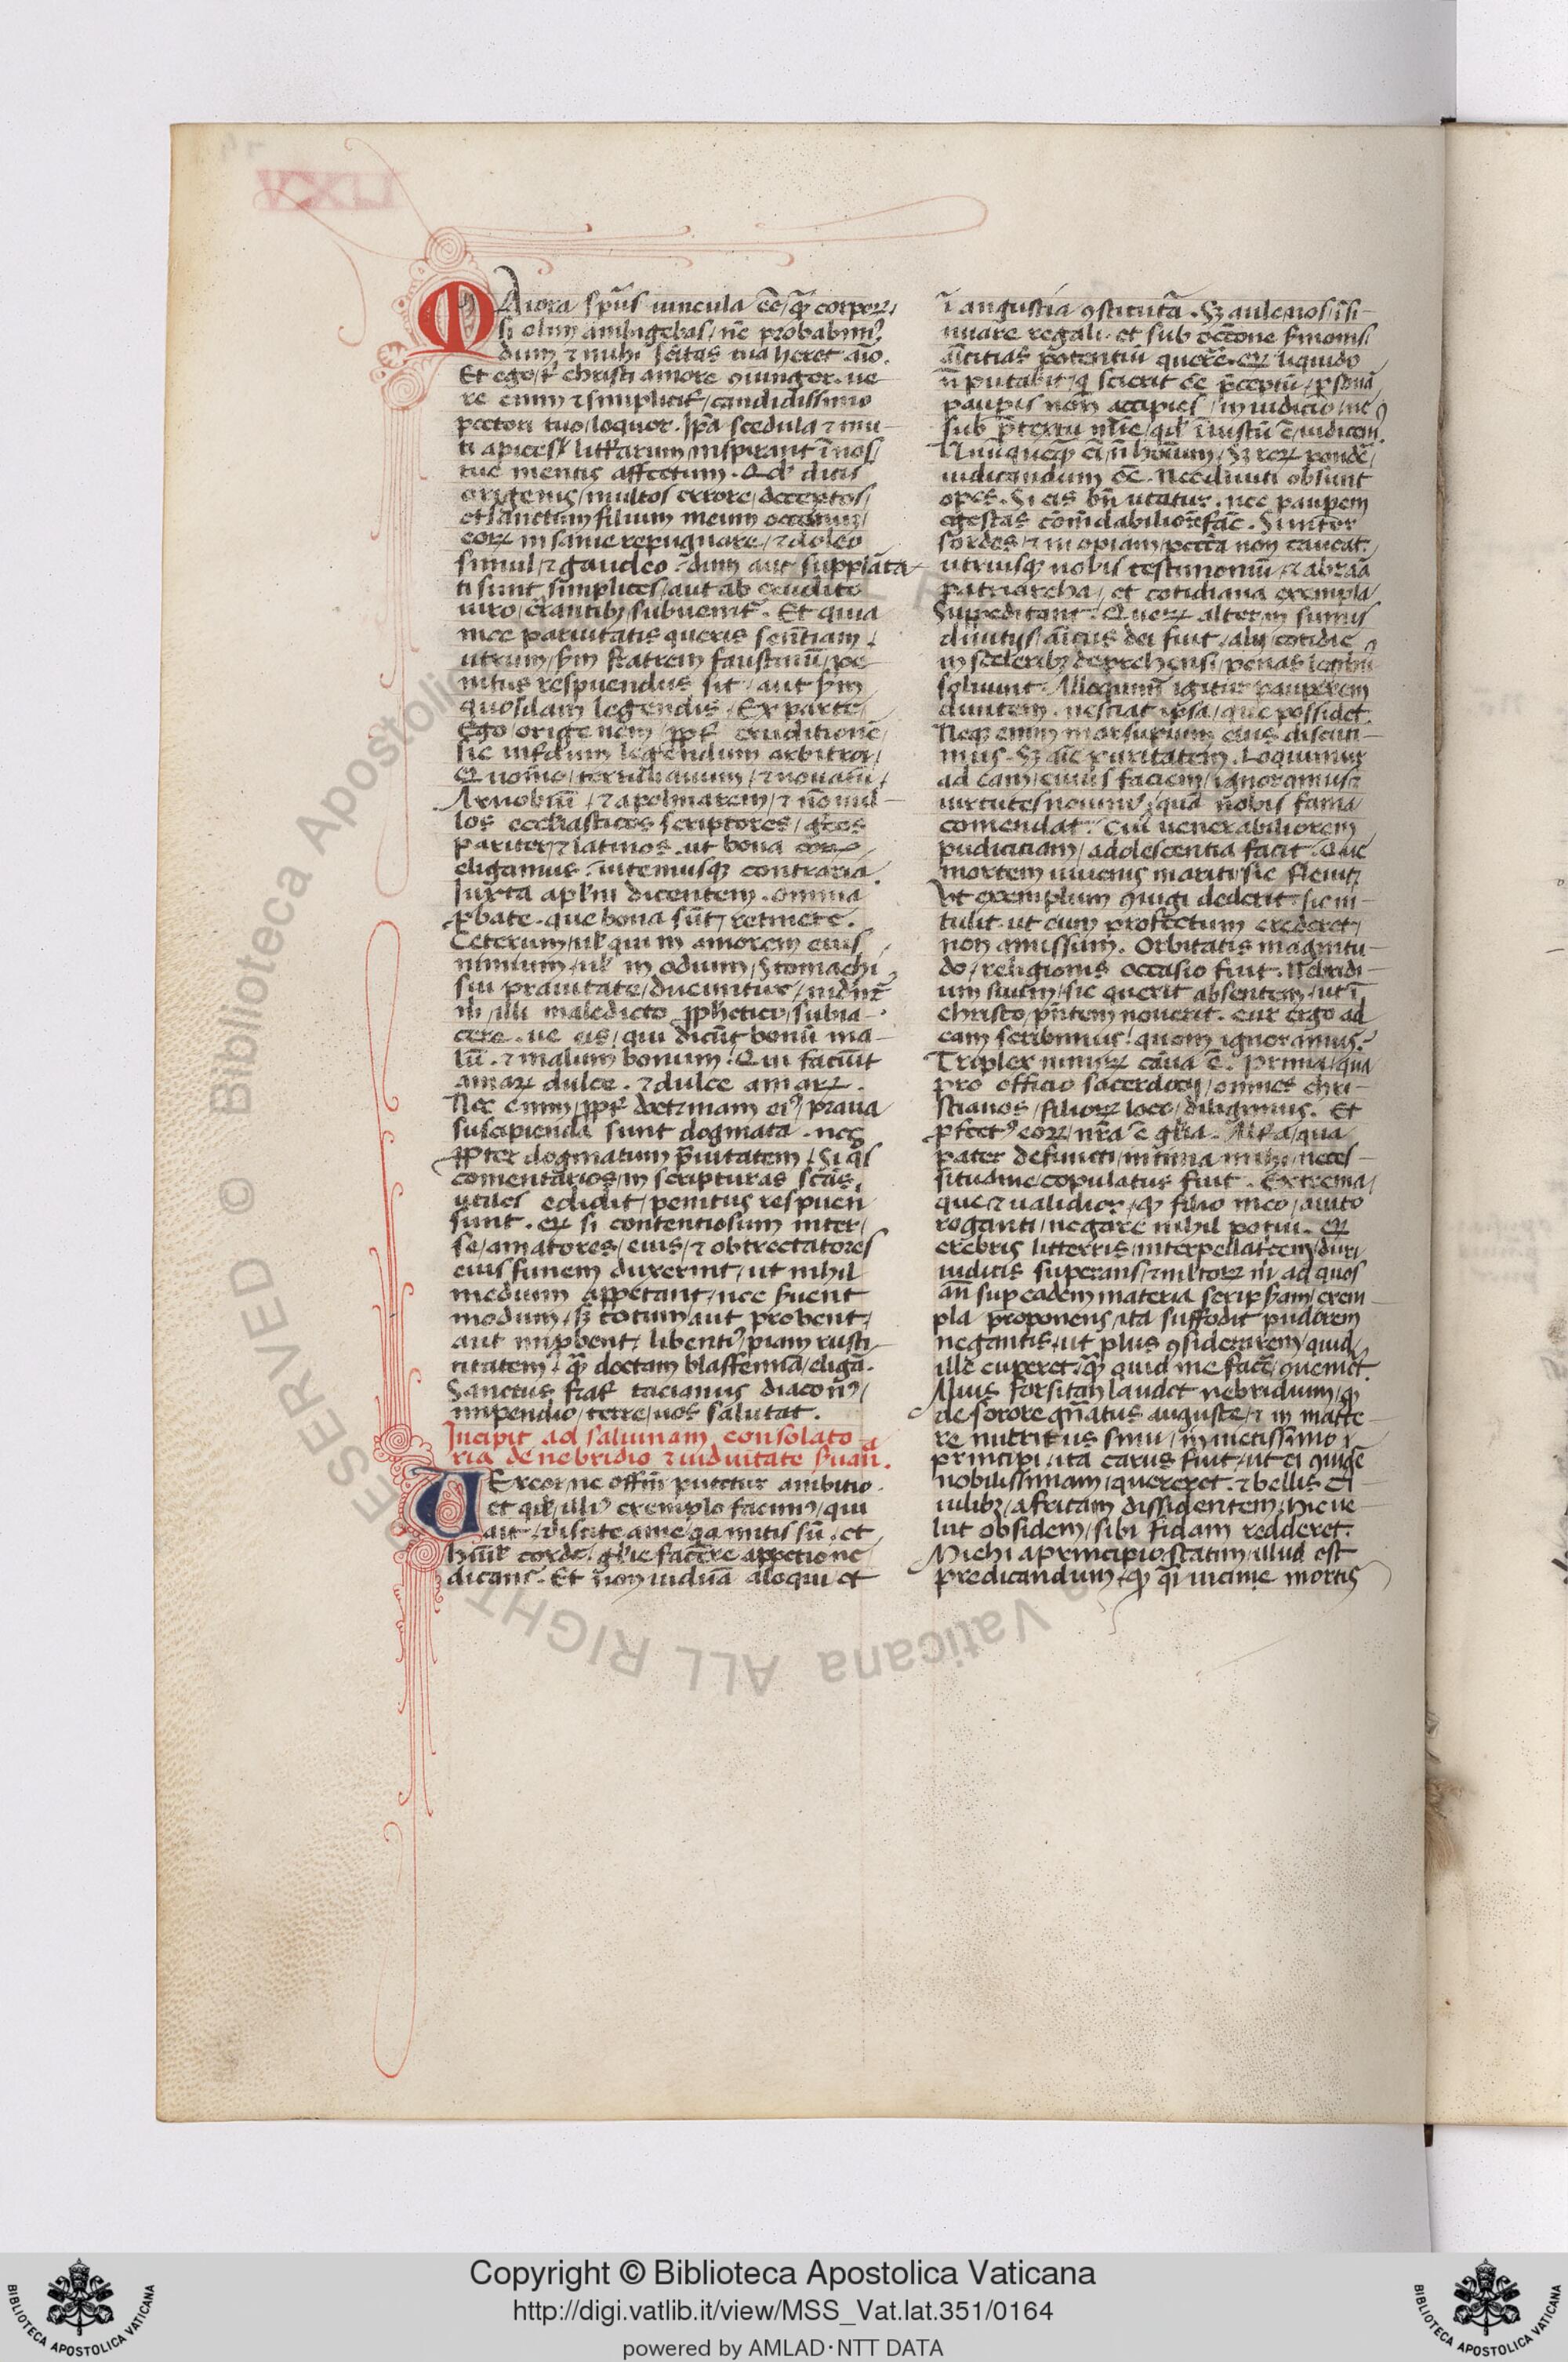 LXXV
MAiora spūs uincula eē/ꝙ̃ corporꝝ/
si olim ambigebas/nc̄ probabim⁹
dum ⁊ mihi sc̄itas tua heret aīo.
Et ego/t̄ christi amore ꝯiungor. ue
re enim ⁊ simplicit̄/candidissimo
pectori tuo/loquor. Ip̄a scedula ⁊ mu-
ti apices/litt̄arum/inspirant ī nos/
tue mentis affectum. Qd̄ dicis
origenis/multos errore/deceptos/
et sanctum filium meum oceanum/
eorꝝ insanie repugnare/⁊ doleo
simul/⁊ gaudeo. dum aut supplāta
ti sunt simplices/aut ab erudito
uiro/erantibꝫ/subuenit̄. Et quia
mee paruitatis queris sententiam/
utrum/sm̄ fratrem faustinū/pe-
nitus respuendus sit/aut sm̄
quosdam legendus/Ex parte/
Ego/origenem/ꝓpt̄ eruditionē/
sic int̄dum legendum arbitror/
Quomo/tertullianum/⁊ nouatū/
Arnobiū/⁊ apolinarem/⁊ nōnul-
los ecclesiasticos scriptores/grecos
pariter/⁊ latinos. ut bona eorꝝ
eligamus. uitemusqꝫ contraria
Iuxta apl̄m dicentem. omnia
ꝓbate. que bona sūt/retinete.
Ceterum/ul̄ qui in amorem eius
nimium/ul̄ in odium/stomachi
sui prauitate/ducuntur/uident̄
m̄/illi maledicto ꝓphetico/subia-
cere. ue eis/qui dicūt bonū ma-
lū. ⁊ malum bonum. Qui faciūt
amarꝝ dulce. ⁊ dulce amarꝝ.
Nec enim/ꝓpt̄ doctrinam ei⁹/praua
suscipienda sunt dogmata. nec
ꝓpter dogmatum p̄uitatem/Si q̄s
comentarios/in scripturas sc̄as/
utiles edidit/penitus respuen
sunt. Qꝝ si contentiosum inter/
se/amatores/eius/⁊ obtrectatores
eius funem duxerint/ut nihil
medium appetant/nec seruent
modum/sꝫ totum/aut probent/
aut improbent/libenti⁹/piam rusti
citatem/ꝙ̃ doctam blasfemiā/eligā.
Sanctus frat̄ tacianus diacon⁹/
impendio/terre/uos salutat.
Incipit ad saluinam consolato
ria de nebridio ⁊ uiduitate seruan̄.
UEreor/ne offm̄ putetur ambitio.
et qd̄/illi⁹ exemplo facim⁹/qui
ait/discite a me/qa mitis sū. et
humil̄ corde/glorie facere appetione
dicans. Et non uiduā aloqui et
ī angustia ꝯstitutā. Sꝫ aule/nos/īsi-
nuare regali. et sub occasione sermonis/
amicitias potentiū querere. Qꝝ liquido
n̄ putabit/q̄ scierit eē p̄ceptū/ꝑsonā
pauperis non accipies/in iudicio/ne
sub p̄textu mīe/qd̄ iniustū ē/iudicem.
Unūquēqꝫ ei/n̄ hoīum/Sꝫ rerꝝ ponde/
iudicandum eē. Nec diuiti obsunt
opes. Si eis bn̄ utatur. nec paupem
egestas cōmendabiliorē fac̄. Si inter
sordes/⁊ inopiam/pecc̄ta non caueat.
utriusqꝫ nobis testimoniū/⁊ abraā
patriarcha/et cotidiana exempla
Suppeditant. Quorꝝ alter in sumis
diuitijs/amicus dei fuit/alij cotidie
in sceleribꝫ deprehensi/penas legibus
soluunt. Alloquim̄ igitur pauperem
diuitem. nesciat ipsa/que possidet.
Neqꝫ enim marsupium eius discuti-
mus. Sꝫ aīe puritatem. Loquimur
ad eam/cuius faciem/ignoramus
uirtutes nouim⁹/quā nobis fama
comendat. Cui uenerabiliorem
pudicitiam/adolescentia facit. Que
mortem iuuenis mariti/sic fleuit/
Ut exemplum ꝯiugi dederit. sic in-
tulit. ut eum profectum crederet/
non amissum. Orbitatis magnitu-
do/religionis occasio fuit. Nebridi-
um suum/sic querit absentem/ut ī
christo/p̄ntem nouerit. Cur ergo ad
eam scribimus/quam ignoramus?
Triplex nimirꝝ causa ē. Prima/qua
pro officio sacerdotij/omnes chri-
stianos/filiorꝝ loco/diligimus. Et
ꝓfect⁹ eorꝝ/nr̄a ē gl̄ia. Alt̄a/qua
pater defuncti/intima mihi/neces-
situdine/copulatus fuit. Extrema/
que ⁊ ualidior/ꝙ filio meo/auito
roganti/negare nihil potui. Qꝝ
crebris litteris/interpellatricem/duri
iudicis superans/⁊ multorꝝ m̄ ad quos
an̄ sup eadem materia scripseram/exem-
pla proponens/ita suffodit pudorem
negantis/ut plus ꝯsiderarem/quid/
ille cuperet/ꝙ̃ quid me facē/ꝯueniet.
Alius forsitan laudet nebridium/ꝙ
de sorore gn̄atus auguste/⁊ in mat̄te-
re nutritus sinu/inuictissimo
principi/ita carus fuit/ut ei ꝯiugē
nobilissimam/quereret. ⁊ bellis ci
iulibꝫ/africam dissidentem/hic ue-
lut obsidem/sibi fidam redderet.
Michi a principio statim/illud est
predicandum/ꝙ q̄i uicinie mortis
Copyright © Biblioteca Apostolica Vaticana
http://digi.vatlib.it/view/MSS_Vat.lat.351/0164
powered by AMLAD·NTT DATA
BIBLIOTECA APOSTOLICA VATICANA
BIBLIOTECA APOSTOLICA VATICANA